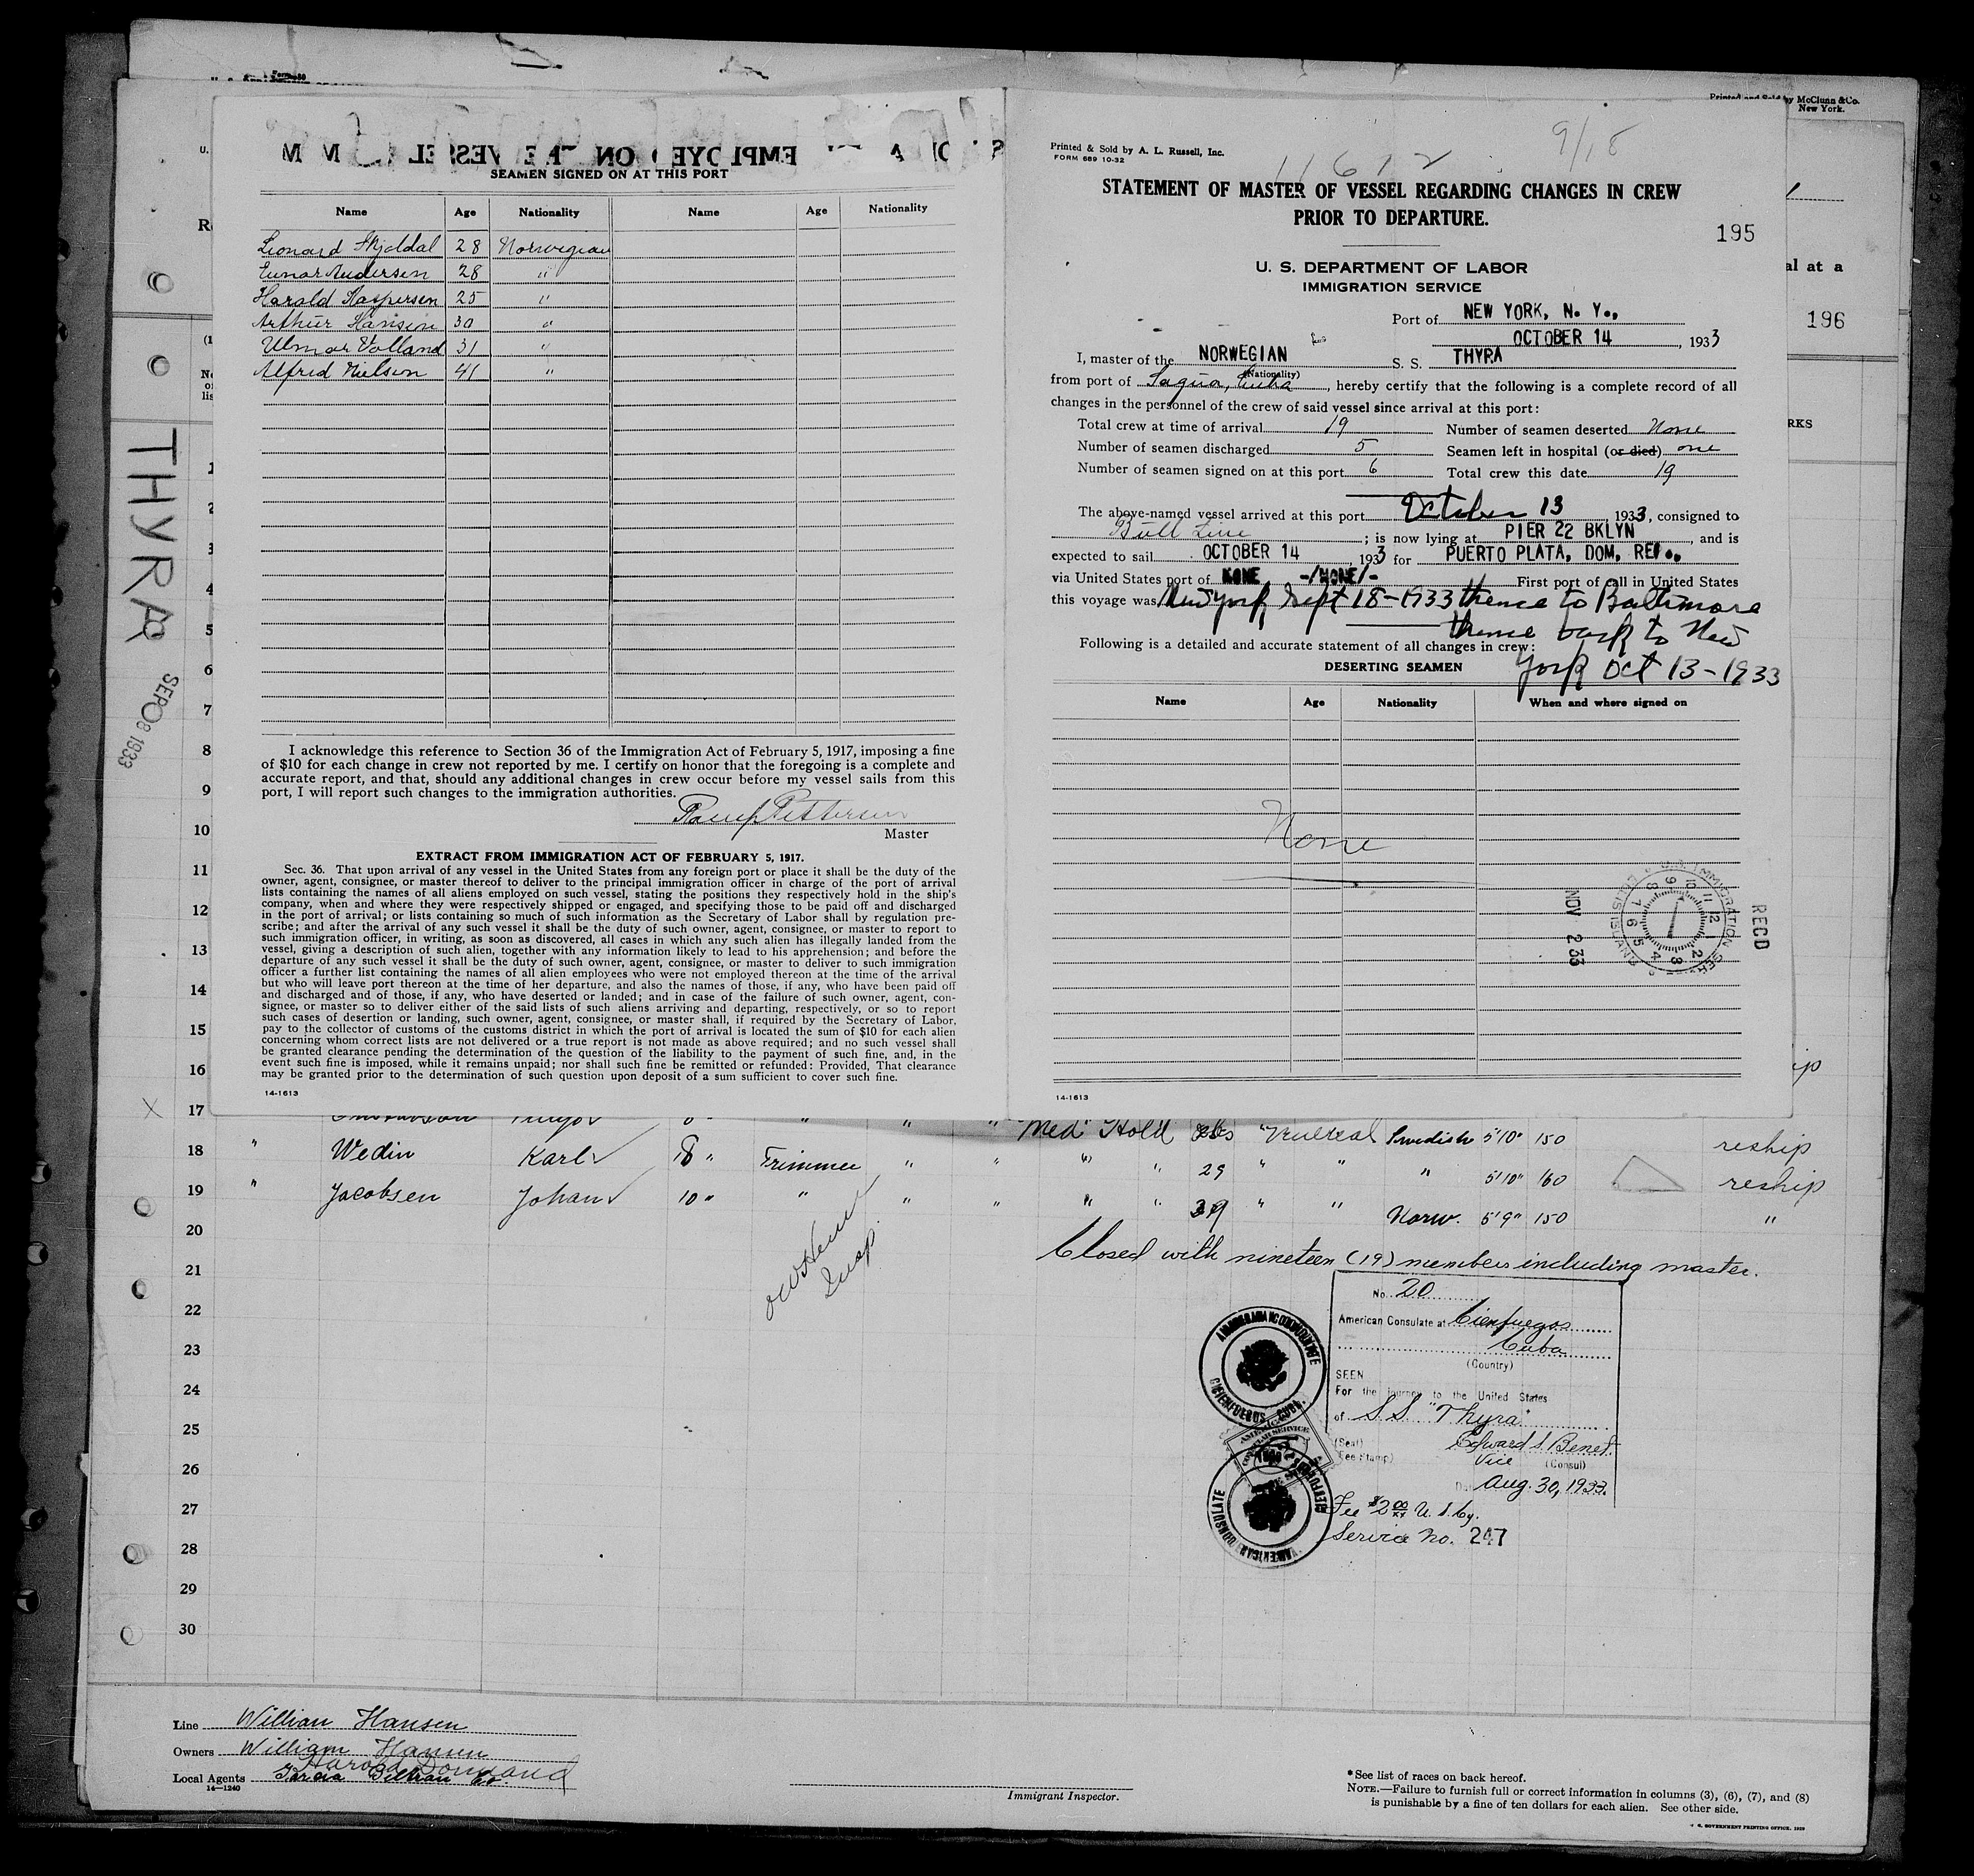 Printed and Sold by McClunn & Co.
New York.
SEAMEN SIGNED ON AT THIS PORT
Name Age Nationality Name Age Nationality
Leonard Skjoldal 28 Norwegian
Einar Andersen 28 "
Harold Kaspersen 25 "
Arthur Hansen 30 "
31 "
Alfred Nielsen 41 "
I acknowledge this reference to Section 36 of the Immigration Act of February 5, 1917, imposing a fine
of $10 for each change in crew not reported by me. I certify on honor that the foregoing is a complete and
accurate report, and that, should any additional changes in crew occur before my vessel sails from this
port, I will report such changes to the immigration authorities.
Pettersen
Master
EXTRACT FROM IMMIGRATION ACT OF FEBRUARY 5, 1917.
Sec. 36. That upon arrival of any vessel in the United States from any foreign port or place it shall be the duty of the
owner, agent, consignee, or master thereof to deliver to the principal immigration officer in charge of the port of arrival
lists containing the names of all aliens employed on such vessel, stating the positions they respectively hold in the ship's
company, when and where they were respectively shipped or engaged, and specifying those to be paid off and discharged
in the port of arrival; or lists containing so much of such information as the Secretary of Labor shall by regulation pre-
scribe; and after the arrival of any such vessel it shall be the duty of such owner, agent, consignee, or master to report to
such immigration officer, in writing, as soon as discovered, all cases in which any such alien has illegally landed from the
vessel, giving a description of such alien, together with any information likely to lead to his apprehension; and before the
departure of any such vessel it shall be the duty of such owner, agent, consignee, or master to deliver to such immigration
officer a further list containing the names of all alien employees who were not employed thereon at the time of the arrival
but who will leave port thereon at the time of her departure, and also the names of those, if any, who have been paid off
and discharged and of those, if any, who have deserted or landed; and in case of the failure of such owner, agent, con-
signee, or master so to deliver either of the said lists of such aliens arriving and departing, respectively, or so to report
such cases of desertion or landing, such owner, agent, consignee, or master shall, if required by the Secretary of Labor,
pay to the collector of customs of the customs district in which the port of arrival is located the sum of $10 for each alien
concerning whom correct lists are not delivered or a true report is not made as above required; and no such vessel shall
be granted clearance pending the determination of the question of the liability to the payment of such fine, and, in the
event such fine is imposed, while it remains unpaid; nor shall such fine be remitted or refunded: Provided, That clearance
may be granted prior to the determination of such question upon deposit of a sum sufficient to cover such fine.
14-1613
Printed & Sold by A. L. Russell, Inc.
FORM 689 10-32
11612
9/18
STATEMENT OF MASTER OF VESSEL REGARDING CHANGES IN CREW
PRIOR TO DEPARTURE.
195
U. S. DEPARTMENT OF LABOR
IMMIGRATION SERVICE
Port of NEW YORK, N. Y.,
OCTOBER 14, 1933
I, master of the NORWEGIAN S. S. THYRA
(Nationality)
from port of Sagua, Cuba, hereby certify that the following is a complete record of all
changes in the personnel of the crew of said vessel since arrival at this port:
Total crew at time of arrival 19 Number of seamen deserted None
Number of seamen discharged 5 Seamen left in hospital (or died) one
Number of seamen signed on at this port 6 Total crew this date 19
The above-named vessel arrived at this port October 13 1933, consigned to
Bull Line; is now lying at PIER 22 BKLYN, and is
expected to sail OCTOBER 14 1933 for PUERTO PLATA, DOM, REP.,
via United States port of NONE -/NONE/- First port of call in United States
this voyage was New York Sept 18-1933 thence to Baltimore
thence back to New
York Oct 13-1933
Following is a detailed and accurate statement of all changes in crew:
DESERTING SEAMEN
Name Age Nationality When and where signed on
None
RECD
NOV 2 33
14-1613
al at a
196
RKS
THYRA
SEP 08 1933
1
2
3
4
5
6
7
8
9
10
11
12
13
14
15
16
17 " " Med Hold " Swedish 5'10" 150 reship
18 " Wedin Karl 8 " Trimmer " " " " 29 " " " 5'10" 160 reship
19 " Jacobsen Johan 10 " " " " " " 39 " " Norw. 5'9" 150 "
20
21
22
23
24
25
26
27
28
29
30
Closed with nineteen (19) members including master.
Insp.
No. 20
American Consulate at Cienfuegos
Cuba
(Country)
SEEN
For the journey to the United States
of S.S. "Thyra"
(Seal)
Fee Stamp)
Edward S. Benet
Vice (Consul)
Aug. 30, 1933.
Fee $2.00 U.S. Cy.
Service No. 247
AMERICAN CONSULATE
CIENFUEGOS, CUBA.
Line William Hansen
Owners William Hansen
Local Agents Garcia Beltran Co.
14-1240
Immigrant Inspector.
*See list of races on back hereof.
NOTE.—Failure to furnish full or correct information in columns (3), (6), (7), and (8)
is punishable by a fine of ten dollars for each alien. See other side.